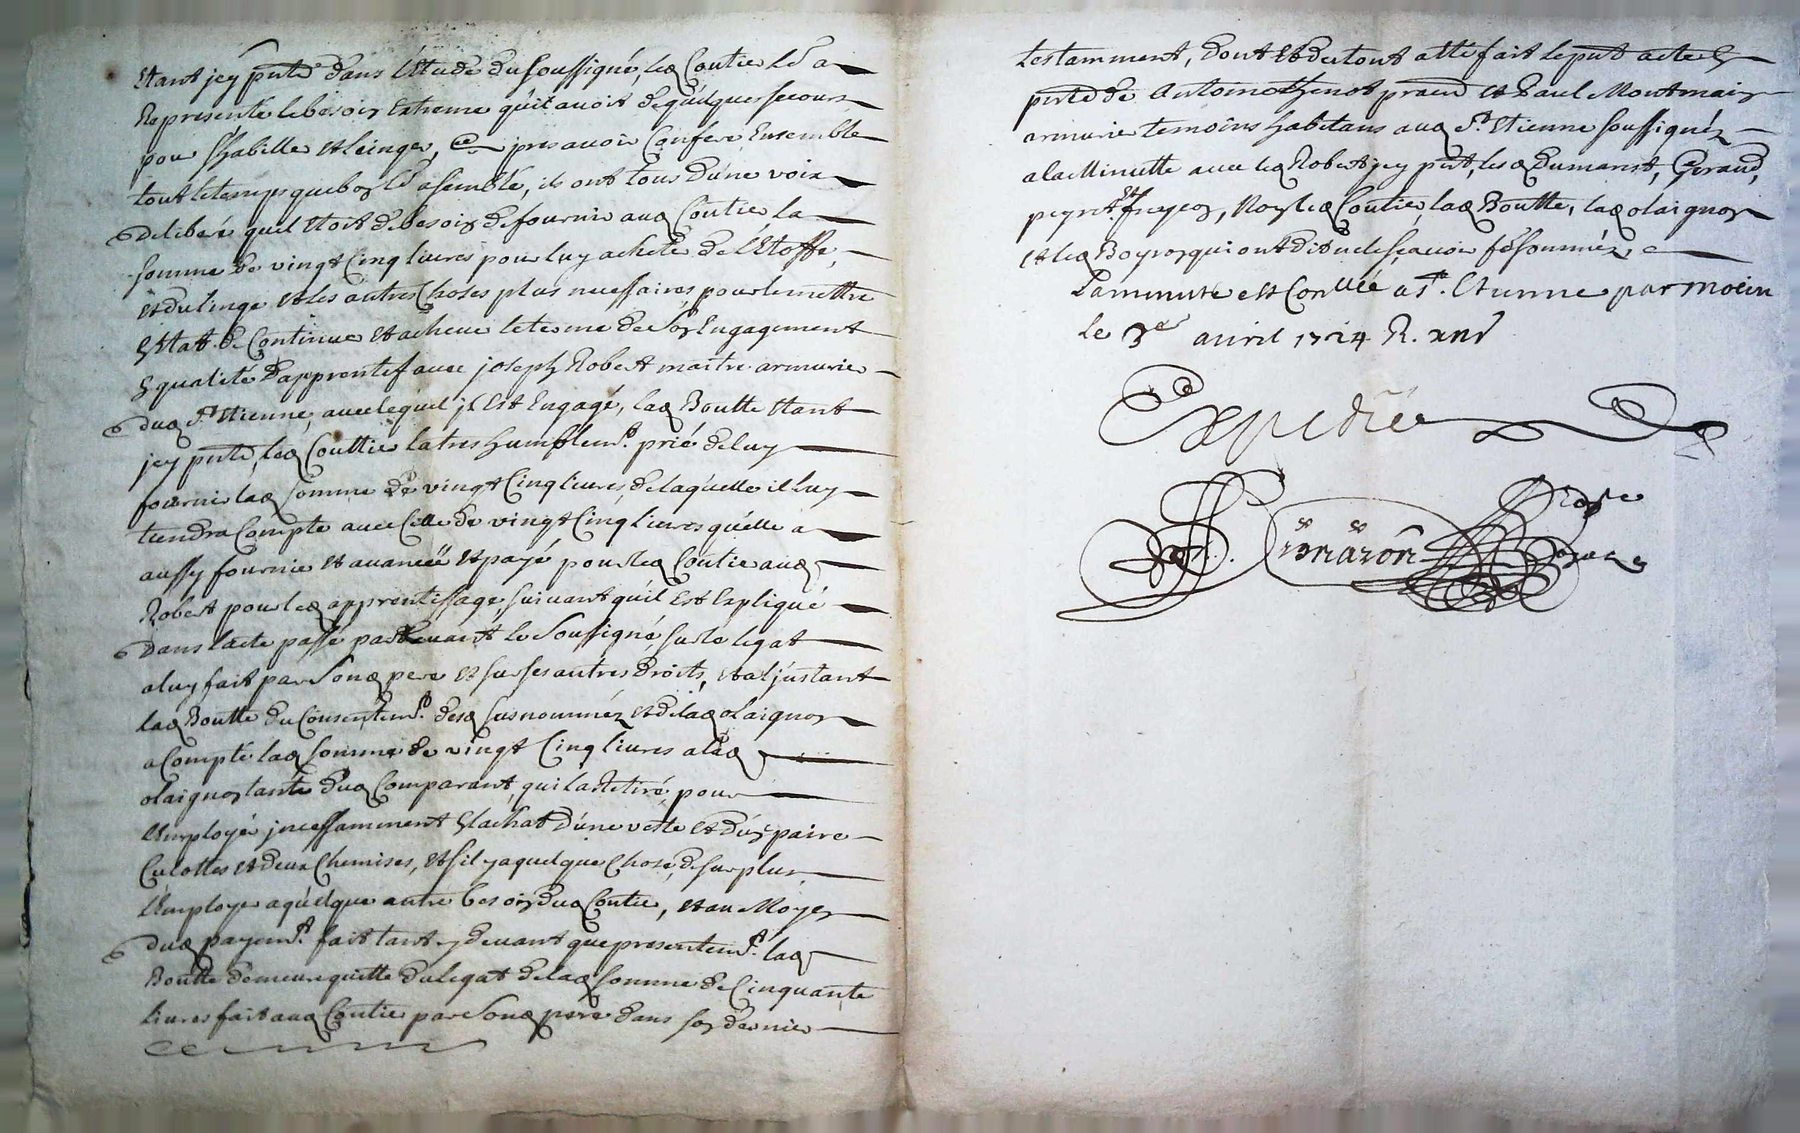 Etant jcy pnte dans L'Etude du soussigné, led Coutie Ld a
Representé le besoin Extreme qu'il avoit de quelque secours
pour shabiller et leinger, et apres avoir Conferé Ensemble
tout le temps que bon Ld a semblé, ils ont tous d'une voix
Deliberé quil Etoit de besoin de fournir aud Coutie la
somme de vingt Cinq livres pour luy acheté de L'Etoffe,
et du linge et les autres Choses plus necessaires pour le mettre
En Etat de Continuer et achever le terme de son Engagement
En qualité dapprentif avec joseph Robert maitre armurier
dud St Etienne, avec lequel jl Est Engagé, lad Boutte Etant
jcy pnte, led Couttie la tres humblemt prié de luy
fournir lad somme de vingt Cinq livres, de laquelle il luy
tiendra Compte avec Celle de vingt Cinq livres quelle a
aussy fournie et avancée et payé pour led Coutie aud
Robert pour led apprentissage, suivant quil Est Expliqué
Dans lacte passé pardevant le Soussigné, sur le legat
a luy fait par Son d pere et sur ses autres droits, et a l'jnstant
lad Boutte du Consentemt desd susnommés et de lad olaignon
a Compté lad somme de vingt Cinq livres a lad
olaignon tante dud Comparant, qui la Retiré, pour
L'Employé jncessamment En lachat d'une veste et d'un paire
Culottes et deux Chemises, et s'il y a quelque Chose de surplus,
L'Employer a quelque autre besoin dud Coutie, et au Moyen
dud payemt fait tant cy devant que presentemt lad
Boutte demeure quitte du legat de lad somme de Cinquante
livres fait aud Coutie par Son d pere dans son dernier
testamment, dont Et du tout a été fait le pnt acte En
pnce de Antoine Thenot prand et Paul Montmain
armurier temoins habitans aud St Etienne soussignés
a la Minutte avec led Robert jcy pnt, lesd Dumarest, Giraud,
peyret, et freycon, Non led Coutie, lad Boutte, lad olaignon
et led Boyron qui ont dit ne le sçavoir de ce sommés
La minute est Conllée a St. Etienne par moein
le 3e avril 1724 R. xns
Expediée